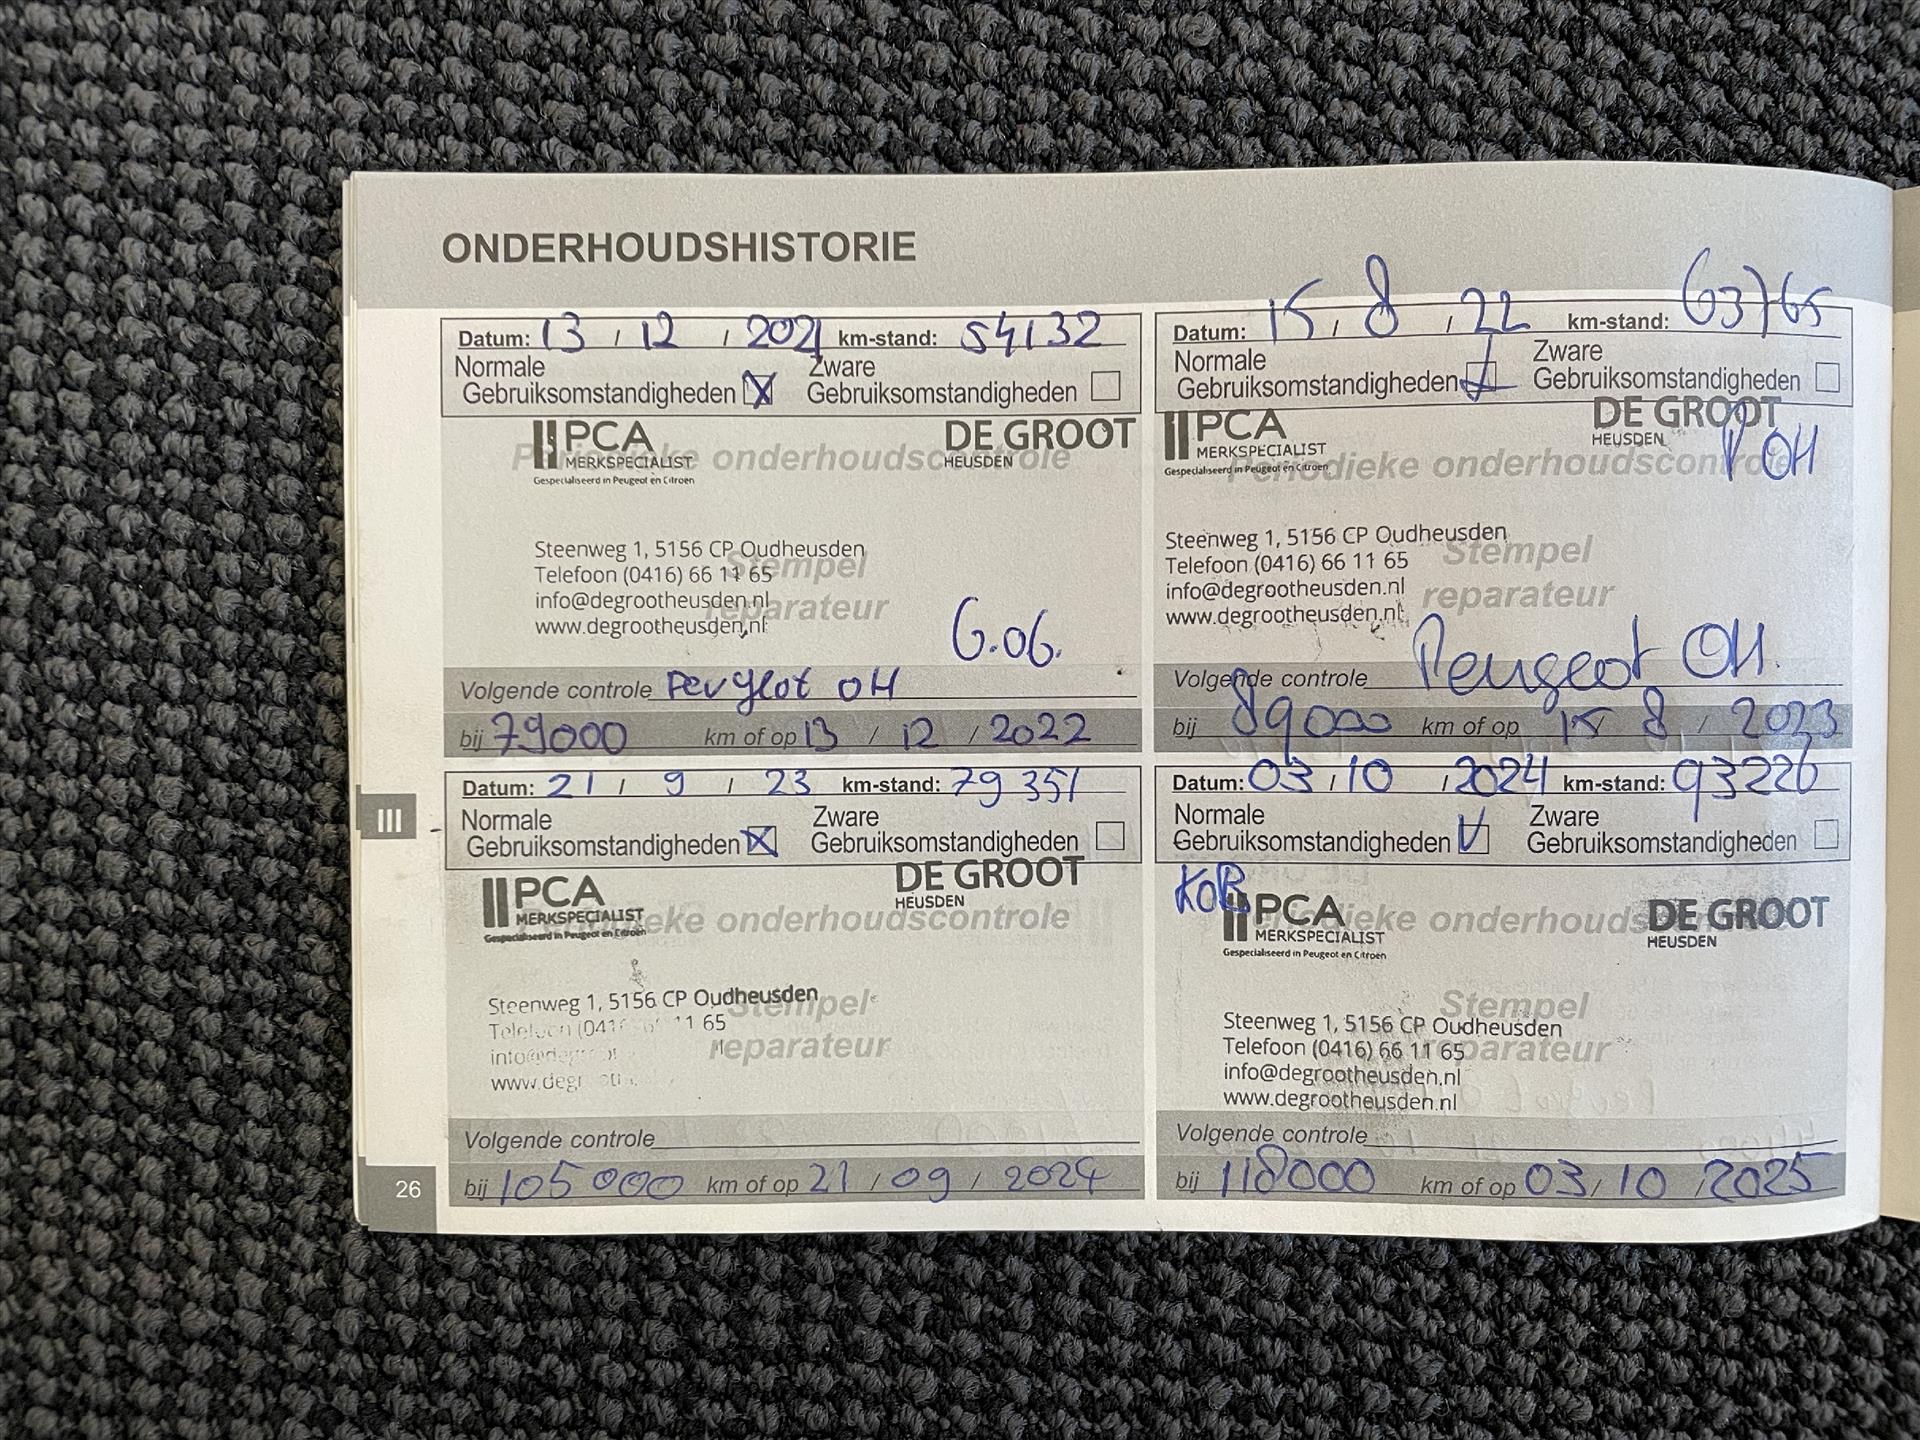 ONDERHOUDSHISTORIE
Datum: 13 / 12 / 2021 km-stand: 54132
Normale Zware
Gebruiksomstandigheden Gebruiksomstandigheden
PCA DE GROOT
MERKSPECIALIST HEUSDEN
Periodieke onderhoudscontrole
Gespecialiseerd in Peugeot en Citroen
Steenweg 1, 5156 CP Oudheusden
Stempel
Telefoon (0416) 66 11 65
info@degrootheusden.nl
reparateur
www.degrootheusden.nl
6.06.
Volgende controle Peugeot OH
bij 79000 km of op 13 / 12 / 2022
Datum: 15 / 8 / 22 km-stand: 63765
Normale Zware
Gebruiksomstandigheden Gebruiksomstandigheden
PCA DE GROOT
MERKSPECIALIST HEUSDEN
P OH
Periodieke onderhoudscontrole
Gespecialiseerd in Peugeot en Citroen
Steenweg 1, 5156 CP Oudheusden
Stempel
Telefoon (0416) 66 11 65
info@degrootheusden.nl
reparateur
www.degrootheusden.nl
Volgende controle Peugeot OH.
bij 89000 km of op 15 / 8 / 2023
Datum: 21 / 9 / 23 km-stand: 79351
Normale Zware
Gebruiksomstandigheden Gebruiksomstandigheden
PCA DE GROOT
MERKSPECIALIST HEUSDEN
Periodieke onderhoudscontrole
Gespecialiseerd in Peugeot en Citroen
Steenweg 1, 5156 CP Oudheusden
Stempel
11 65
reparateur
Volgende controle
bij 105000 km of op 21 / 09 / 2024
Datum: 03 / 10 / 2024 km-stand: 93226
Normale Zware
Gebruiksomstandigheden Gebruiksomstandigheden
KOR
PCA DE GROOT
MERKSPECIALIST HEUSDEN
Periodieke onderhoudscontrole
Gespecialiseerd in Peugeot en Citroen
Stempel
Steenweg 1, 5156 CP Oudheusden
Telefoon (0416) 66 11 65
reparateur
info@degrootheusden.nl
www.degrootheusden.nl
Volgende controle
bij 118000 km of op 03 / 10 / 2025
III
26